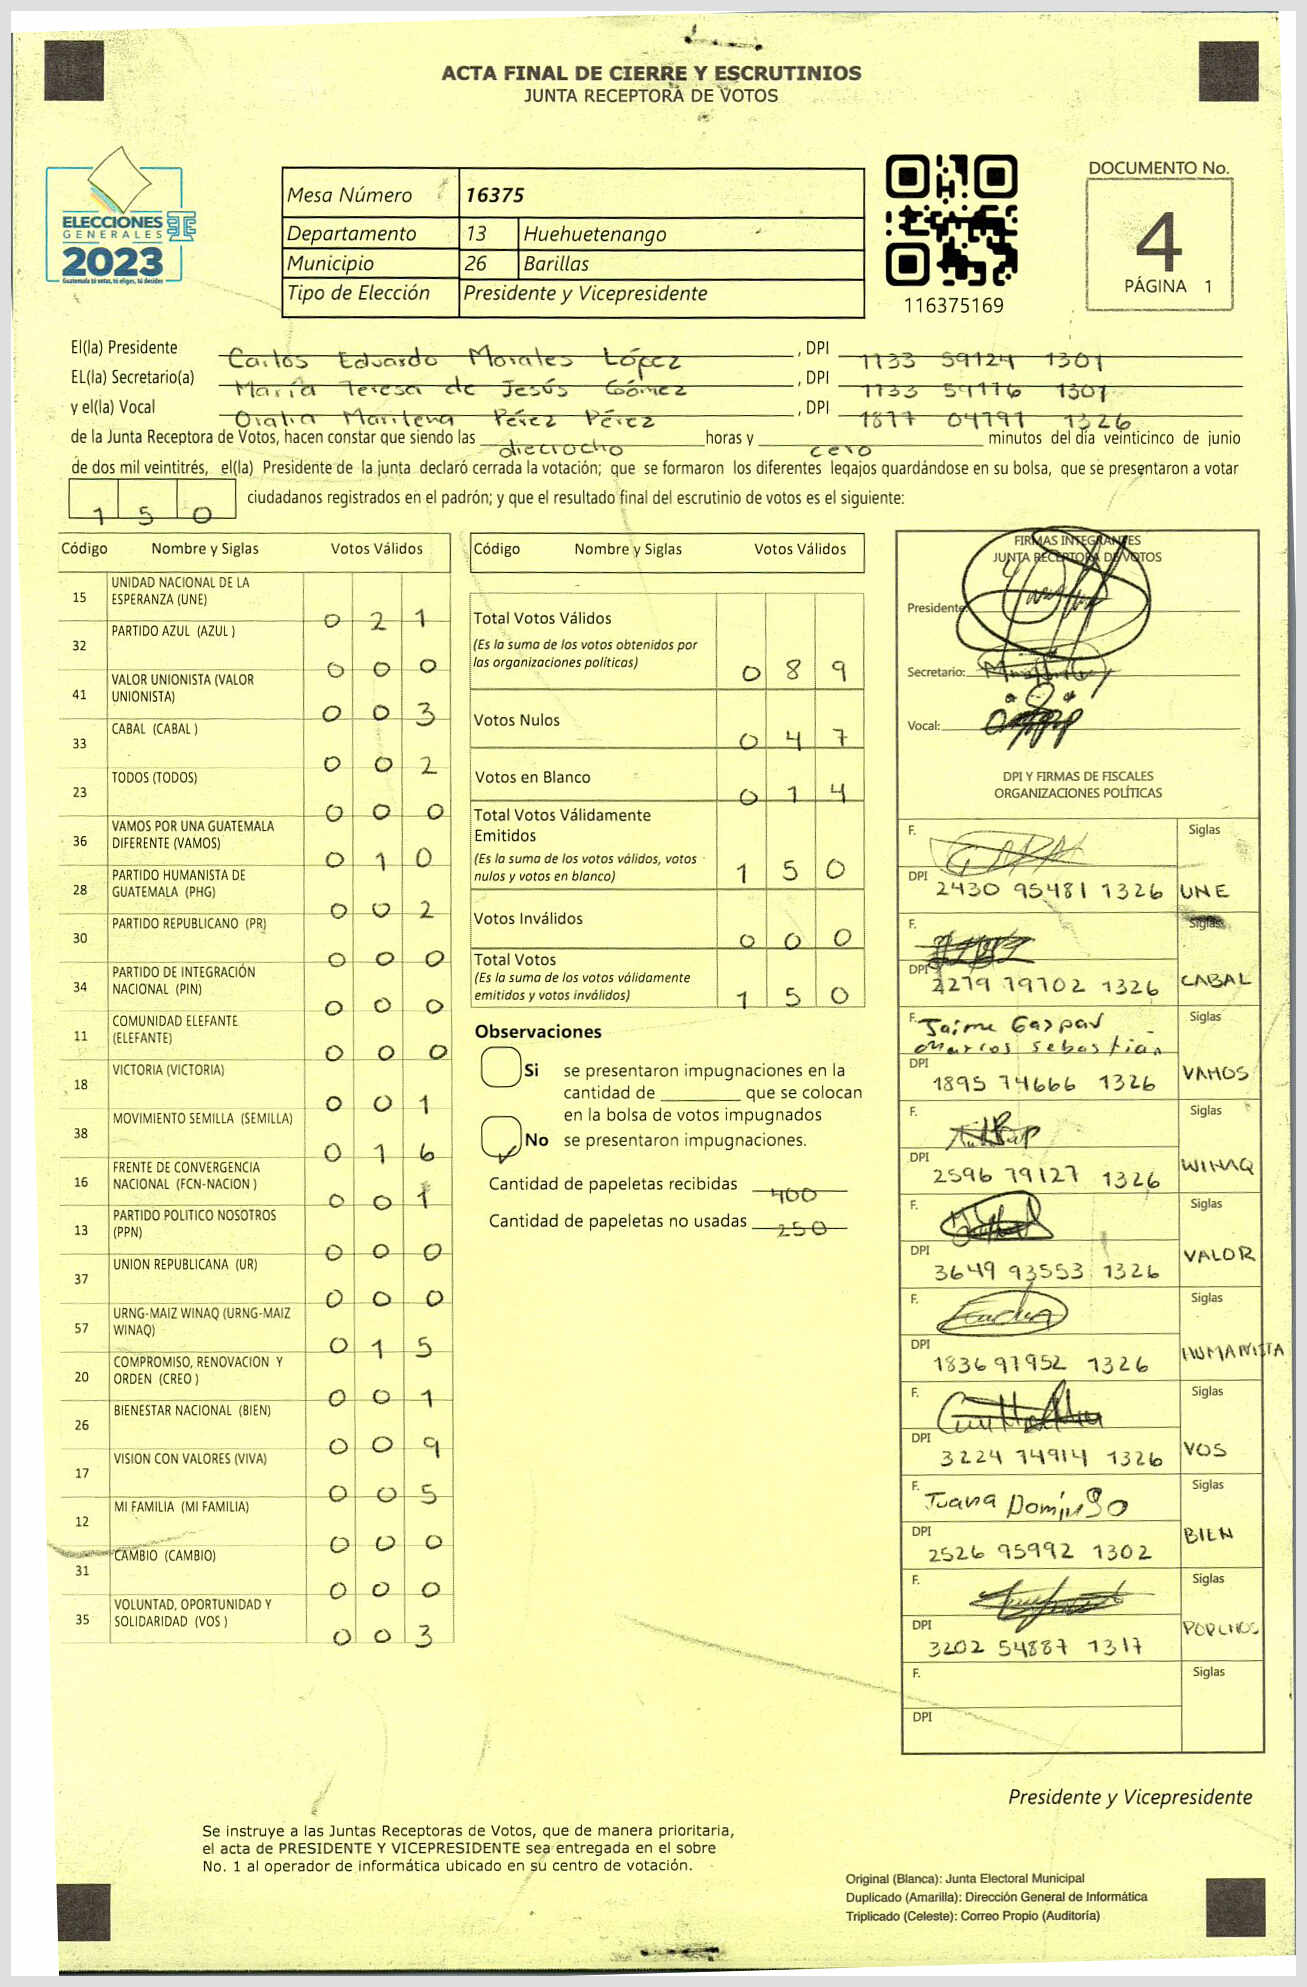 ACTA FINAL DE CIERRE Y ESCRUTINIOS
JUNTA RECEPTORA DE VOTOS
ELECCIONES
GENERALES
2023
Guatemala tú votas, tú eliges, tú decides
Mesa Número 16375
Departamento 13 Huehuetenango
Municipio 26 Barillas
Tipo de Elección Presidente y Vicepresidente
116375169
DOCUMENTO No.
4
PÁGINA 1
El(la) Presidente Carlos Eduardo Morales López, DPI 1733 59124 1301
EL(la) Secretario(a) María Teresa de Jesús Gómez, DPI 1733 59776 1301
y el(la) Vocal Marilena Pérez Pérez, DPI 1877 04791 1326
de la Junta Receptora de Votos, hacen constar que siendo las dieciocho horas y cero minutos del día veinticinco de junio
de dos mil veintitrés, el(la) Presidente de la junta declaró cerrada la votación; que se formaron los diferentes legajos guardándose en su bolsa, que se presentaron a votar
150 ciudadanos registrados en el padrón; y que el resultado final del escrutinio de votos es el siguiente:
Código Nombre y Siglas Votos Válidos
15 UNIDAD NACIONAL DE LA ESPERANZA (UNE) 021
32 PARTIDO AZUL (AZUL ) 000
41 VALOR UNIONISTA (VALOR UNIONISTA) 003
33 CABAL (CABAL ) 002
23 TODOS (TODOS) 000
36 VAMOS POR UNA GUATEMALA DIFERENTE (VAMOS) 010
28 PARTIDO HUMANISTA DE GUATEMALA (PHG) 002
30 PARTIDO REPUBLICANO (PR) 000
34 PARTIDO DE INTEGRACIÓN NACIONAL (PIN) 000
11 COMUNIDAD ELEFANTE (ELEFANTE) 000
18 VICTORIA (VICTORIA) 001
38 MOVIMIENTO SEMILLA (SEMILLA) 016
16 FRENTE DE CONVERGENCIA NACIONAL (FCN-NACION ) 001
13 PARTIDO POLITICO NOSOTROS (PPN) 000
37 UNION REPUBLICANA (UR) 000
57 URNG-MAIZ WINAQ (URNG-MAIZ WINAQ) 015
20 COMPROMISO, RENOVACION Y ORDEN (CREO ) 001
26 BIENESTAR NACIONAL (BIEN) 009
17 VISION CON VALORES (VIVA) 005
12 MI FAMILIA (MI FAMILIA) 000
31 CAMBIO (CAMBIO) 000
35 VOLUNTAD, OPORTUNIDAD Y SOLIDARIDAD (VOS ) 003
Código Nombre y Siglas Votos Válidos
Total Votos Válidos 089
(Es la suma de los votos obtenidos por
las organizaciones políticas)
Votos Nulos 047
Votos en Blanco 014
Total Votos Válidamente
Emitidos 150
(Es la suma de los votos válidos, votos
nulos y votos en blanco)
Votos Inválidos 000
Total Votos 150
(Es la suma de los votos válidamente
emitidos y votos inválidos)
Observaciones
Si se presentaron impugnaciones en la
cantidad de ________ que se colocan
en la bolsa de votos impugnados
No se presentaron impugnaciones.
Cantidad de papeletas recibidas 400
Cantidad de papeletas no usadas 250
FIRMAS INTEGRANTES
JUNTA RECEPTORA DE VOTOS
Presidente:
Secretario:
Vocal:
DPI Y FIRMAS DE FISCALES
ORGANIZACIONES POLÍTICAS
F. Siglas
DPI 2430 95481 1326 UNE
F. Siglas
DPI 2279 79702 1326 CABAL
F. Jaime Gaspar Siglas
Marcos Sebastián
DPI 1895 74666 1326 VAMOS
F. Siglas
DPI 2596 79127 1326 WINAQ
F. Siglas
DPI 3649 93553 1326 VALOR
F. Siglas
DPI 1836 97952 1326 HUMANISTA
F. Siglas
DPI 3224 74914 1326 VOS
F. Juana Domingo Siglas
DPI 2526 95992 1302 BIEN
F. Siglas
DPI 3202 54887 1317
F. Siglas
DPI
Presidente y Vicepresidente
Se instruye a las Juntas Receptoras de Votos, que de manera prioritaria,
el acta de PRESIDENTE Y VICEPRESIDENTE sea entregada en el sobre
No. 1 al operador de informática ubicado en su centro de votación.
Original (Blanca): Junta Electoral Municipal
Duplicado (Amarilla): Dirección General de Informática
Triplicado (Celeste): Correo Propio (Auditoría)